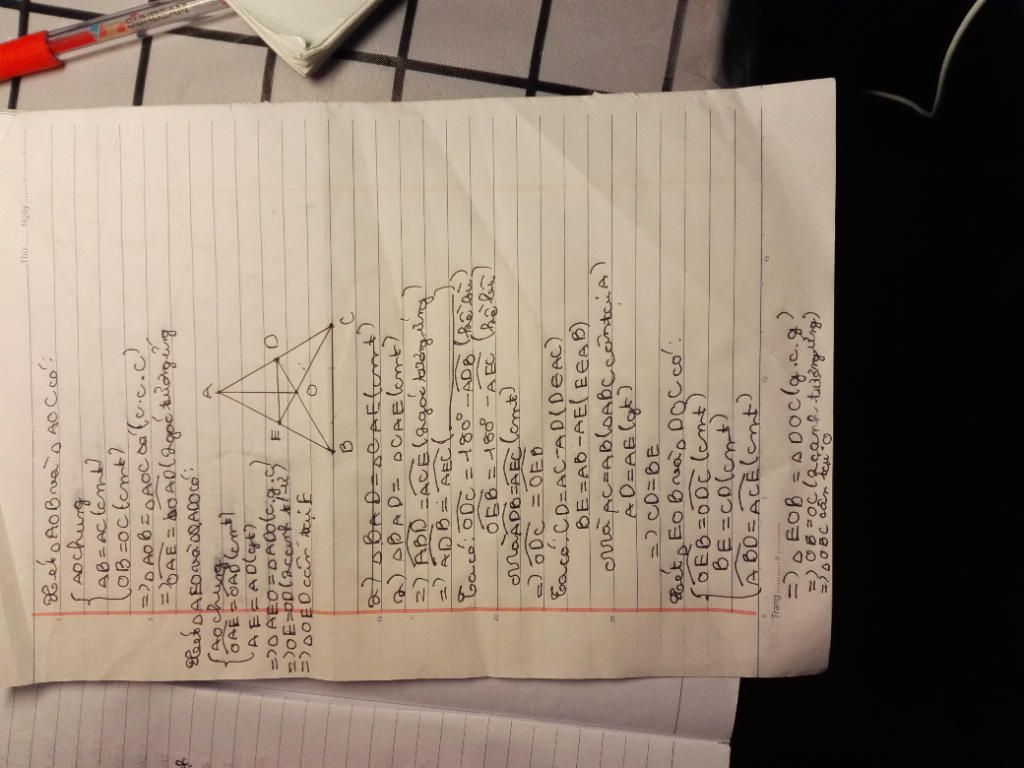 SUNBEAM
Thứ Ngày
Xét △AOB và △AOC có:
AO chung
AB = AC (cmt)
OB = OC (cmt)
=> △AOB = △AOC (c.c.c)
=> OAE = OAD (2 góc tương ứng
Xét △AEO và △ADO có:
AO chung
OAE = OAD (cmt)
AE = AD (gt)
=> △AEO = △ADO (c.g.c)
=> OE = OD (2 cạnh
=> △OED cân tại
A
E
D
O
B
C
△BAD = △CAE (cmt)
△BAD = △CAE (cmt)
=> ABD = ACE (2 góc tương ứng)
=> ADB = AEC (
Ta có: ODC = 180° - ADB (kề bù)
OEB = 180° - AEC (kề bù)
Mà ADB = AEC (cmt)
=> ODC = OEB
Ta có: CD = AC - AD (D ∈ AC)
BE = AB - AE (E ∈ AB)
Mà AC = AB (△ABC cân tại A)
AD = AE (gt)
=> CD = BE
Xét △EOB và △DOC có:
OEB = ODC (cmt)
BE = CD (cmt)
ABD = ACE (cmt)
Trang
=> △EOB = △DOC (g.c.g)
=> OB = OC (2 cạnh tương ứng)
=> △OBC cân tại O